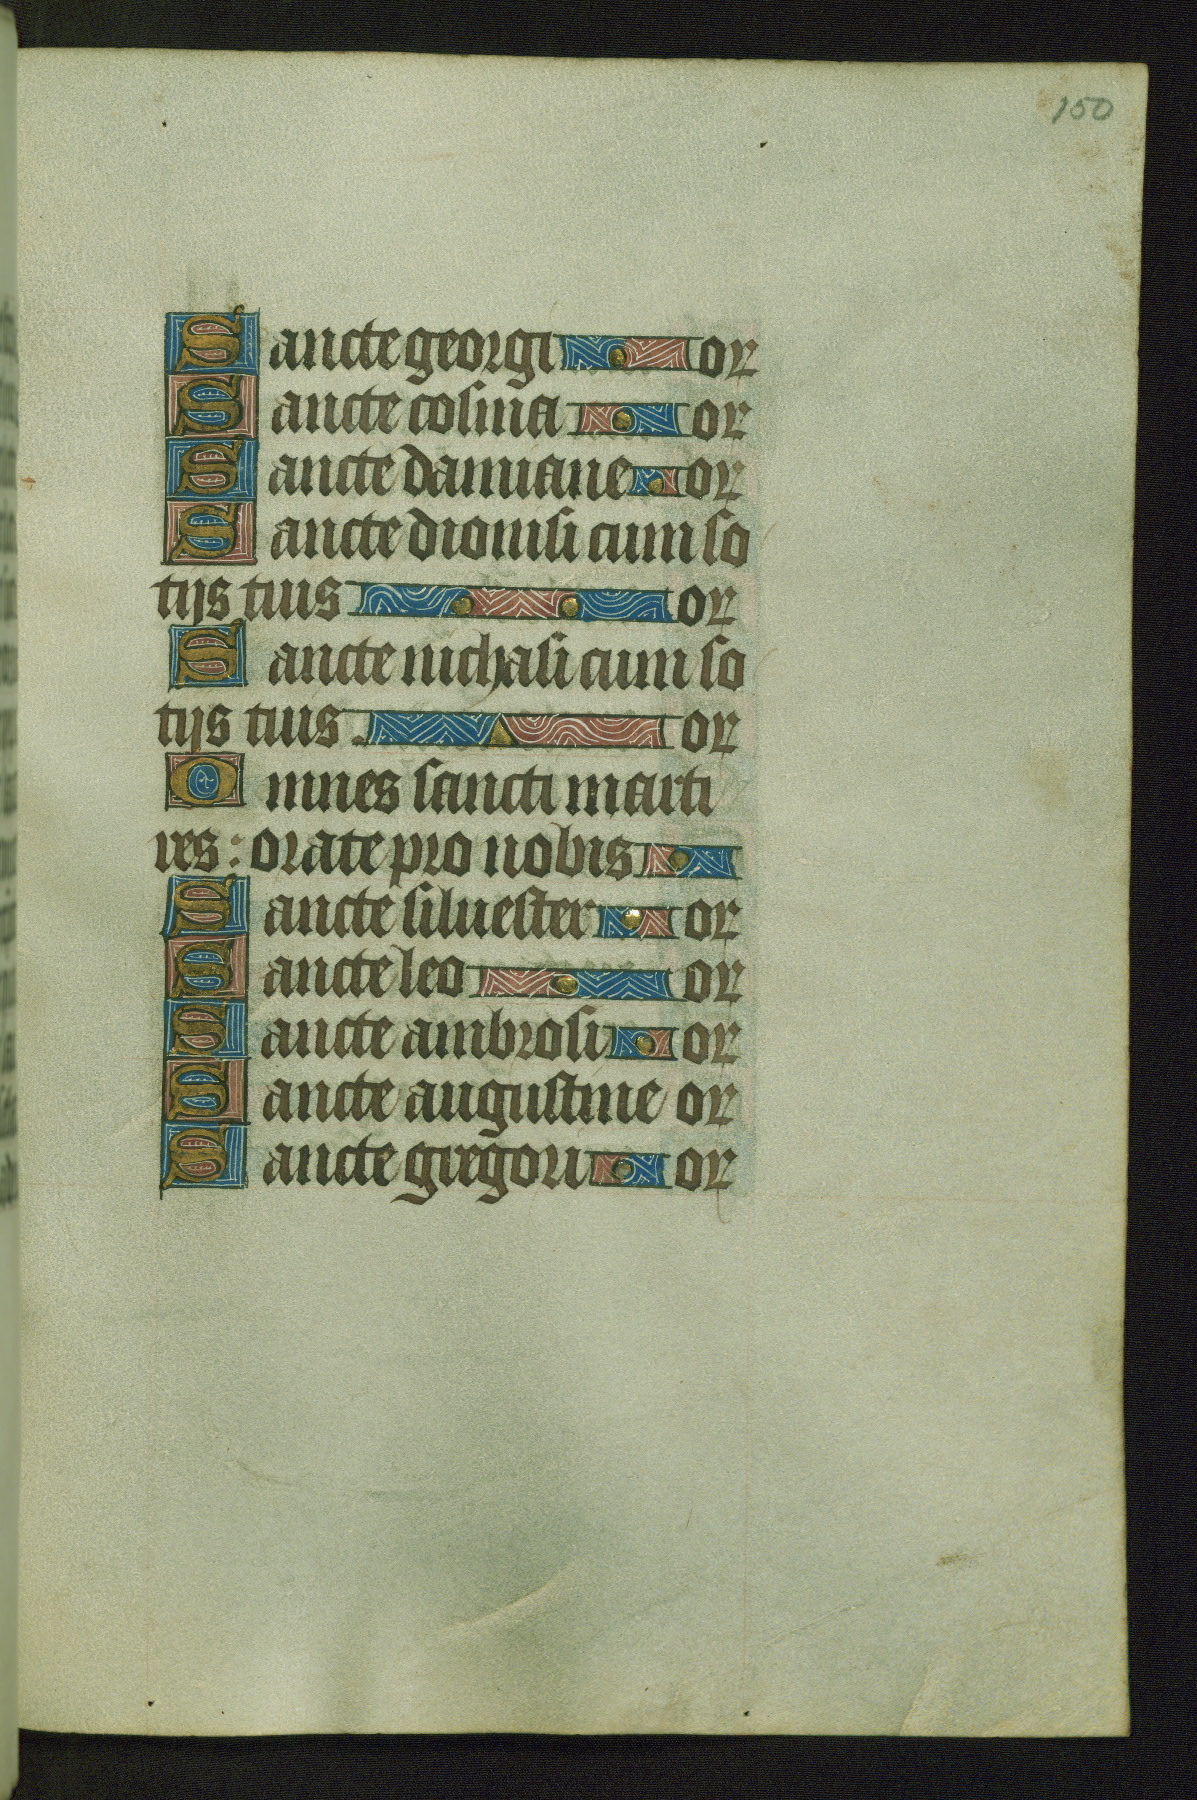 150
Sancte georgi or
Sancte cosma or
Sancte damiane or
Sancte dionisi cum so
tijs tuis or
Sancte nichasi cum so
tijs tuis or
Omnes sancti marti
res : orate pro nobis
Sancte siluester or
Sancte leo or
Sancte ambrosi or
Sancte augustine or
Sancte gregori or